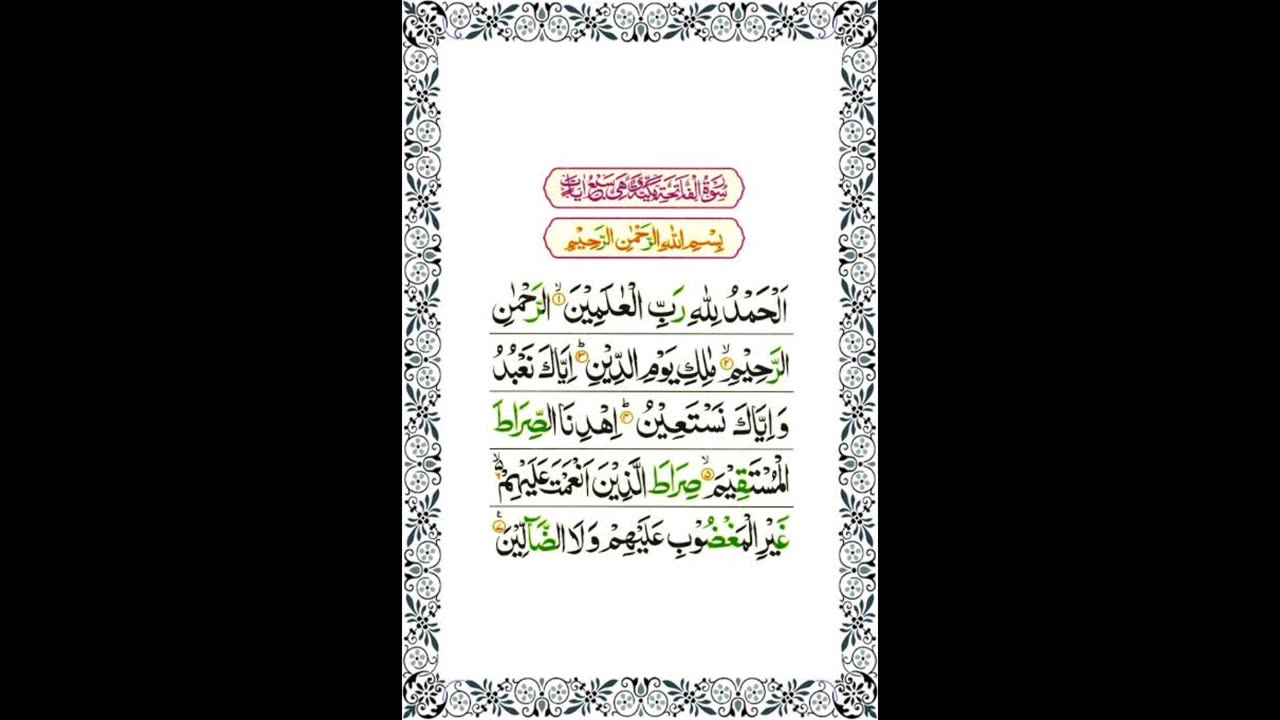 سُوْرَةُ الْفَاتِحَةِ مَكِّيَّةٌ وَّهِیَ سَبْعُ اٰيَاتٍ
بِسْمِ اللّٰهِ الرَّحْمٰنِ الرَّحِيْمِ
اَلْحَمْدُ لِلّٰهِ رَبِّ الْعٰلَمِيْنَ ۙ﴿۱﴾ الرَّحْمٰنِ
الرَّحِيْمِ ۙ﴿۲﴾ مٰلِكِ يَوْمِ الدِّيْنِ ؕ﴿۳﴾ اِيَّاكَ نَعْبُدُ
وَ اِيَّاكَ نَسْتَعِيْنُ ؕ﴿۴﴾ اِهْدِنَا الصِّرَاطَ
الْمُسْتَقِيْمَ ۙ﴿۵﴾ صِرَاطَ الَّذِيْنَ اَنْعَمْتَ عَلَيْهِمْ ۙ﴿۶﴾
غَيْرِ الْمَغْضُوْبِ عَلَيْهِمْ وَ لَا الضَّآلِّيْنَ ﴿۷﴾